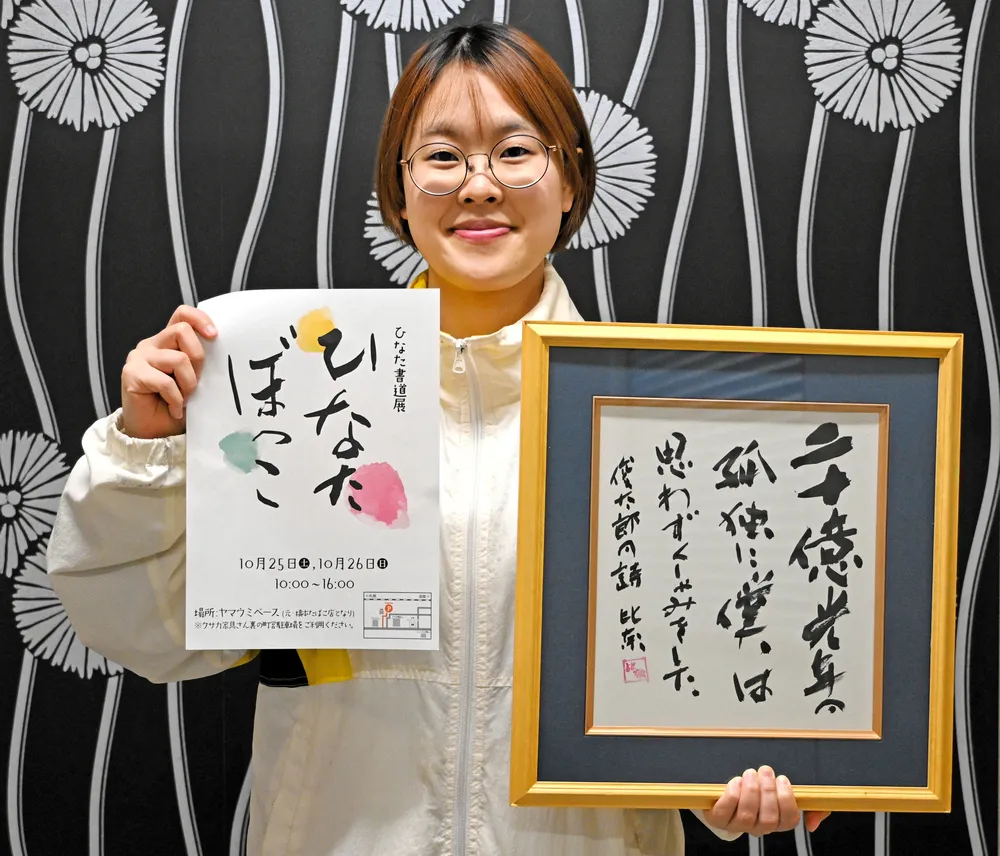 ひなた書道展
ひなた
ぼっこ
10月25日土,10月26日日
10:00〜16:00
場所:ヤマウミベース(元・橋本たばこ店となり)
※クサカ家具さん裏の町営駐車場をご利用ください。
二十億光年の
孤独に僕は
思わずくしゃみをした。
俊太郎の詩 比奈